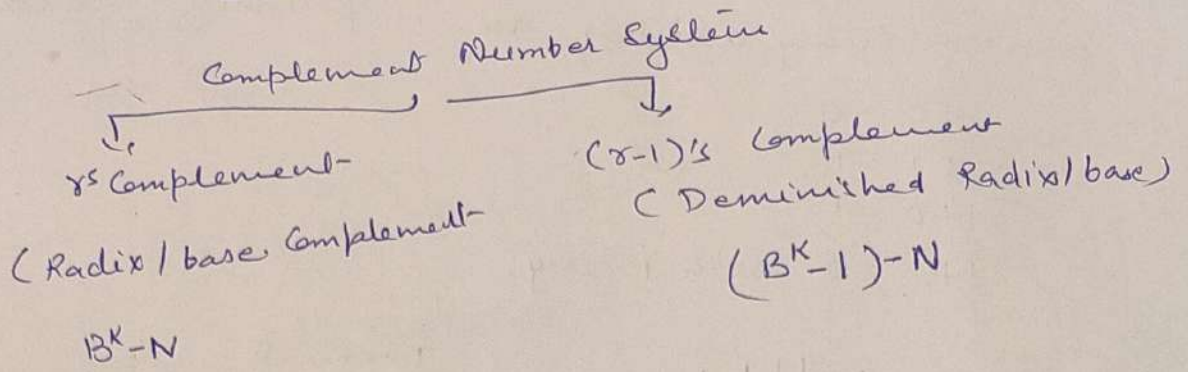 Complement Number System
r's Complement
(Radix / base Complement
B^K-N
(r-1)'s Complement
(Deminished Radix/base)
(B^K-1)-N